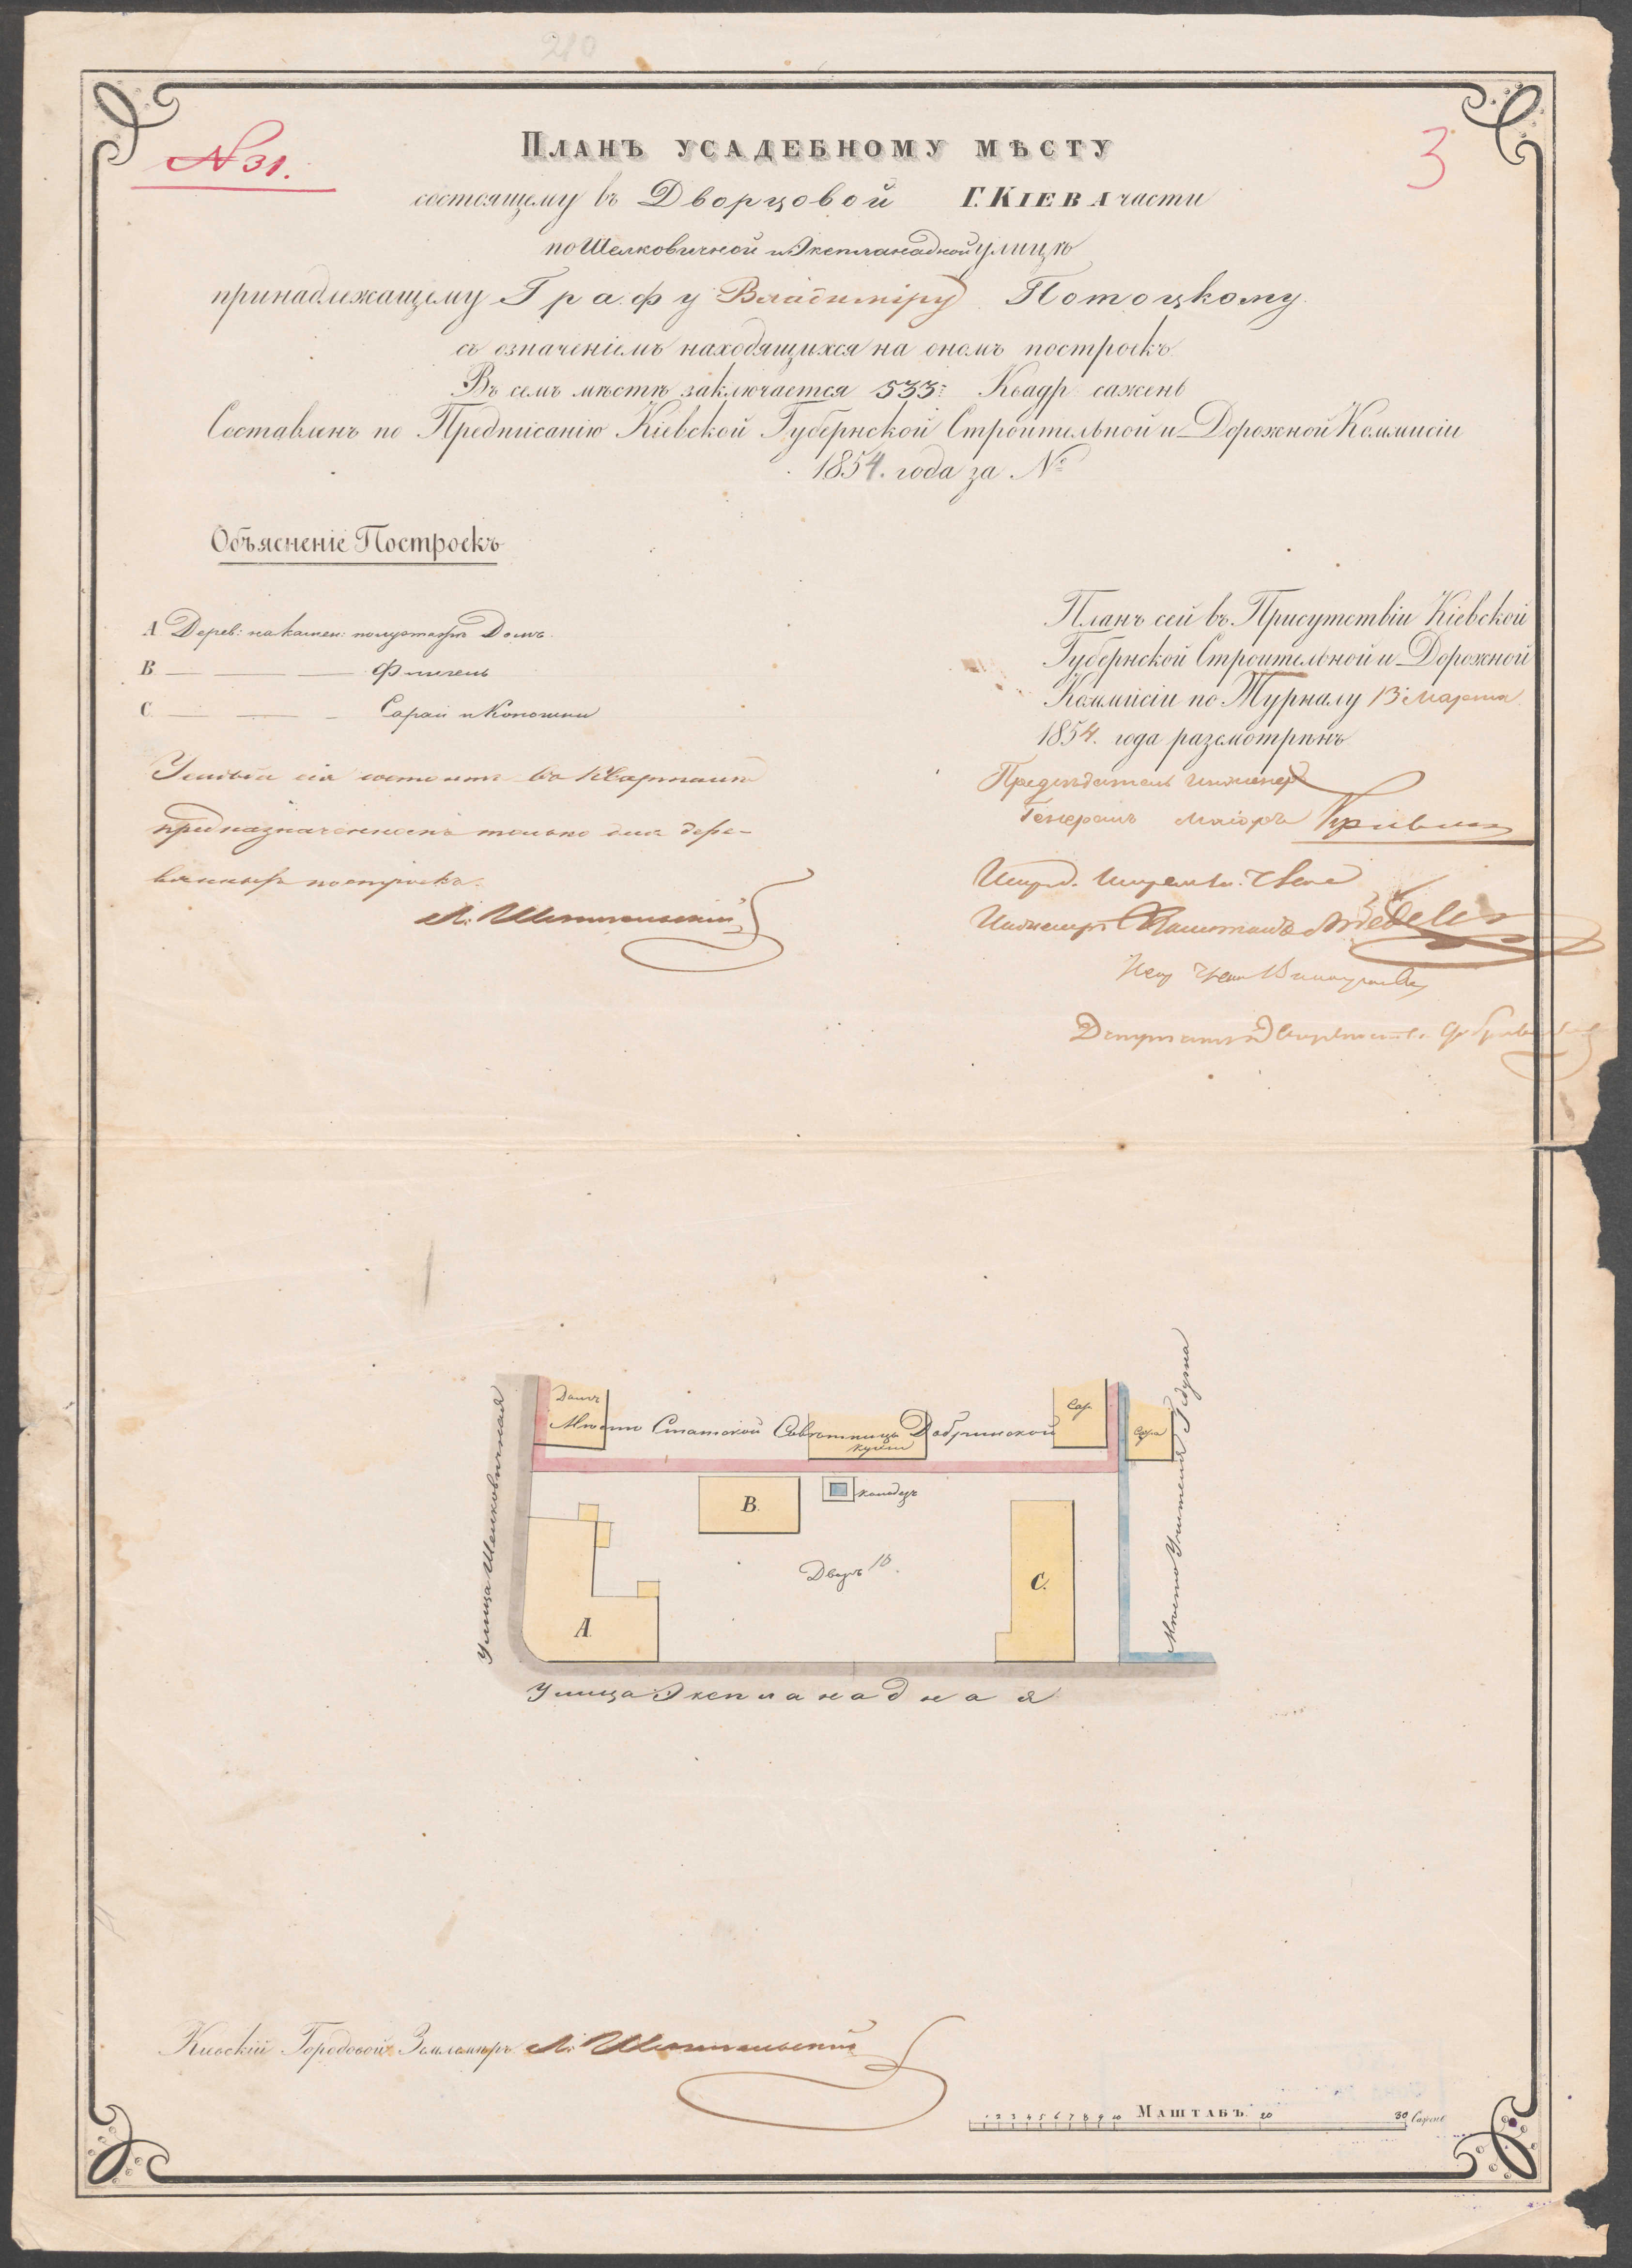 210
N 31.
3
Планъ усадебному мѣсту
состоящему въ Дворцовой Г. Кіева части
по Шелковичной и Экспланадной улицѣ
принадлежащему Графу Владиміру Потоцкому
съ означеніемъ находящихся на ономъ построекъ
Въ семъ мѣстѣ заключается 533: Квадр сажень
Составленъ по Предписанію Кіевской Губернской Строительной и Дорожной Коммисіи
1854. года за №
Объясненіе Построекъ
А Дерев: на камен: полуэтажѣ Домъ.
В — — — Флигель
С — — — Сараи и Конюшни
Усадьба сія состоитъ въ Кварталѣ
предназначенномъ только для дере-
вянныхъ построекъ.
Планъ сей въ Присутствіи Кіевской
Губернской Строительной и Дорожной
Коммисіи по Журналу 13 Марта
1854. года разсмотрѣнъ
Предсѣдатель Инженеръ
Генералъ Маіоръ
Инженеръ Капитанъ
Депутатъ Дворянства
Домъ
Мѣсто Статской Совѣтницы Добрынской
кухни
Сар
Сара
Улица Шелковичная
В.
колодезь
Дворъ
10.
А
С.
Мѣсто Учителя
Улица Экспланадная
Киевскій Городовой Землемѣръ
1 2 3 4 5 6 7 8 9 10 Маштабъ. 20 30 Сажень